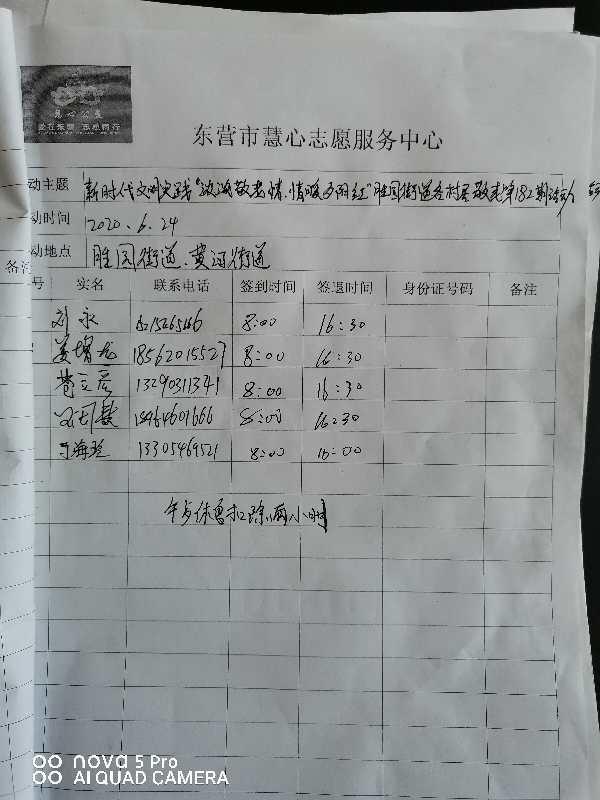 慧心公益
爱在东营 志愿同行
东营市慧心志愿服务中心
动主题 新时代文明实践"浓浓敬老情,情暖夕阳红"胜园街道各村居敬老第182期活动
动时间 2020.6.24
动地点 胜园街道、黄河街道
备注
号 实名 联系电话 签到时间 签退时间 身份证号码 备注
刘永 8:00 16:30
姜增龙 18562015527 8:00 16:30
苍立彦 13290311341 8:00 16:30
8:00 16:30
海 13305469521 8:00 16:00
午点休息扣除两小时
nova 5 Pro
AI QUAD CAMERA